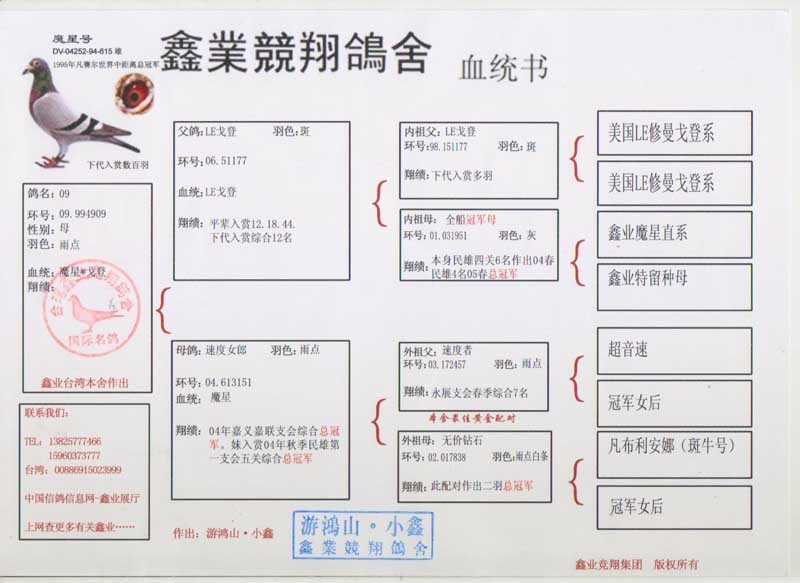 魔星号
DV-04252-94-615 雄
1995年凡赛尔世界中距离总冠军
鑫業競翔鴿舍
血统书
下代入赏数百羽
鸽名：09
环号：09.994909
性别：母
羽色：雨点
血统：魔星*戈登
翔绩：
国际名鸽
鑫业台湾本舍作出
联系我们：
TEL：13825777466
15960373777
台湾：00886915023999
中国信鸽信息网-鑫业展厅
上网查更多有关鑫业……
父鸽：LE戈登 羽色：斑
环号：06.51177
血统：LE戈登
翔绩：平辈入赏12.18.44.
下代入赏综合12名
母鸽：速度女郎 羽色：雨点
环号：04.613151
血统：魔星
翔绩：04年嘉义嘉联支会综合总冠
军。妹入赏04年秋季民雄第
一支会五关综合总冠军
作出：游鸿山·小鑫
内祖父：LE戈登
环号：98.151177 羽色：斑
翔绩：下代入赏多羽
内祖母：全船冠军母
环号：01.031951 羽色：灰
翔绩：本身民雄四关6名作出04春
民雄4名05春总冠军
外祖父：速度者
环号：03.172457 羽色：雨点
翔绩：永展支会春季综合7名
本舍最佳黄金配对
外祖母：无价钻石
环号：02.017838 羽色：雨点白条
翔绩：此配对作出二羽总冠军
游鴻山·小鑫
鑫業競翔鴿舍
美国LE修曼戈登系
美国LE修曼戈登系
鑫业魔星直系
鑫业特留种母
超音速
冠军女后
凡布利安娜（斑牛号）
冠军女后
鑫业竞翔集团 版权所有